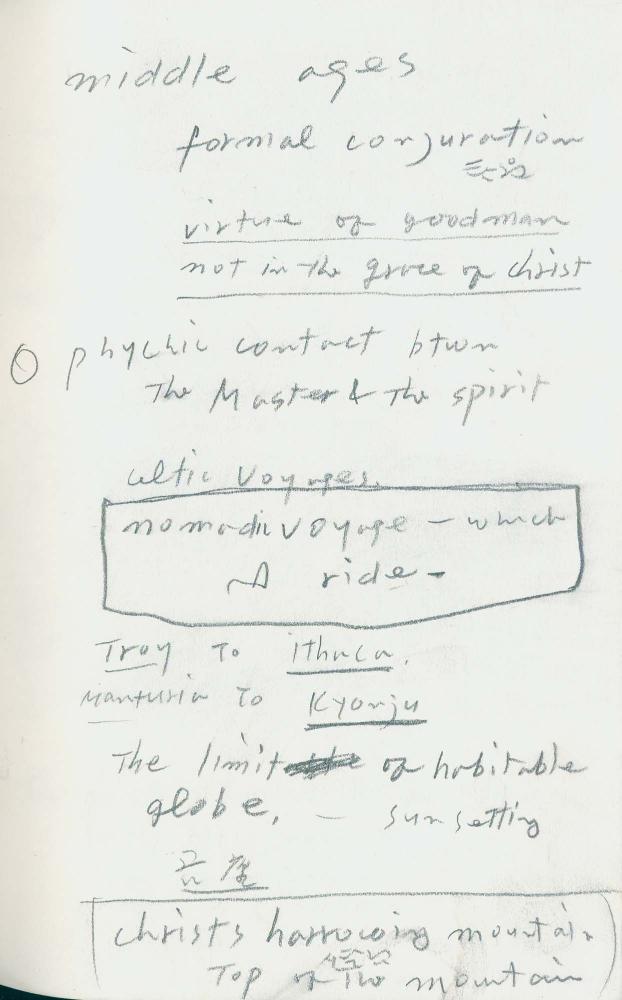 middle ages
formal conjuration
virtue of goodman
not in the grace of christ
phychic contact btwn
The Master & the spirit
celtic voyages.
nomadic voyage – which
ride –
Troy To Ithaca.
Manturia To Kyonju
The limit of habitable
globe, – sun setting
christs harrowing mountain
Top of the mountain